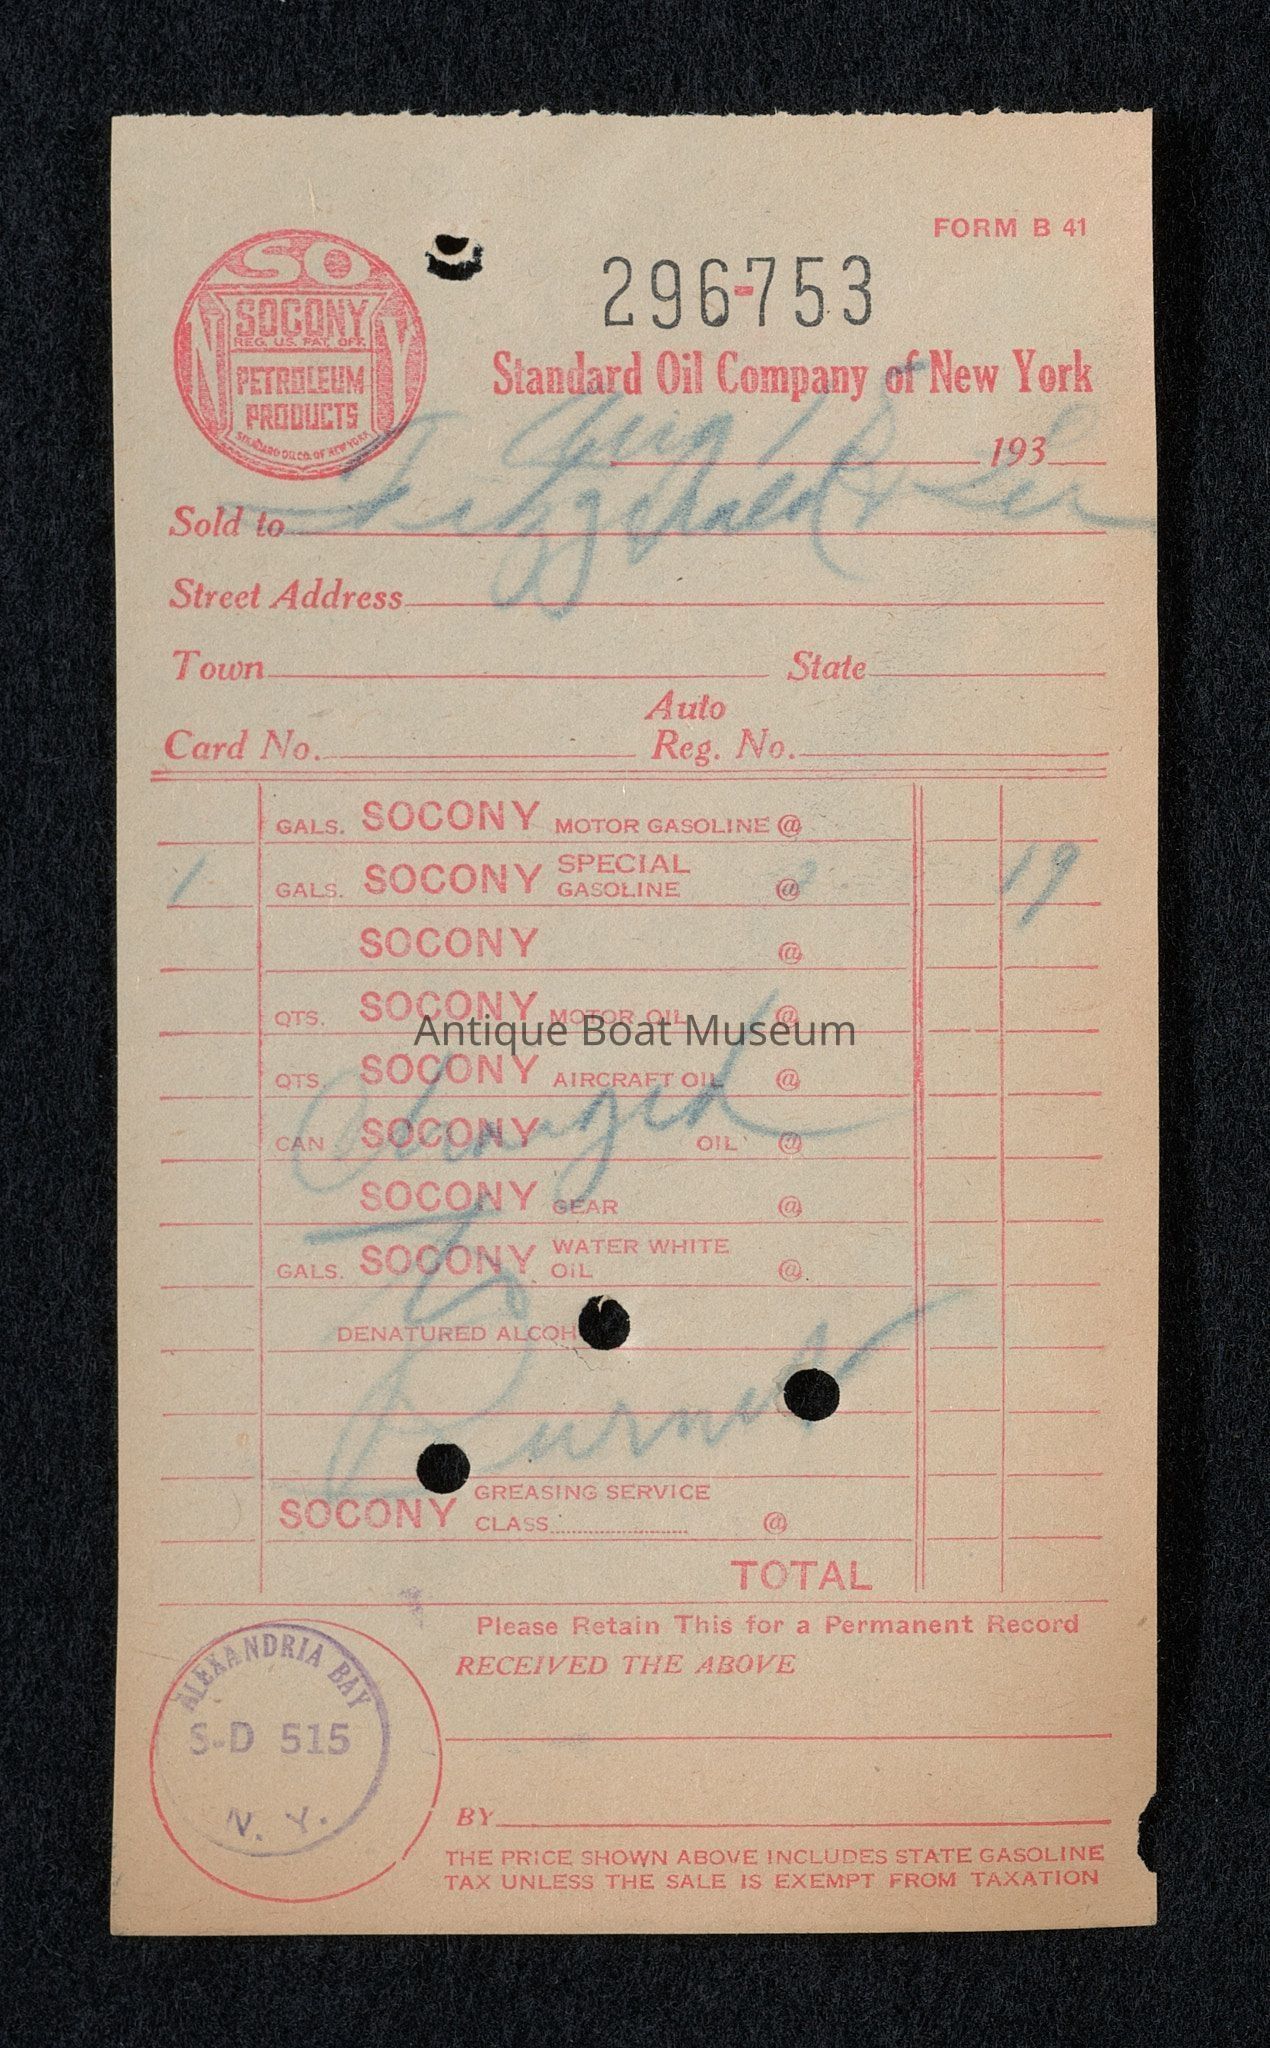 FORM B 41
SO
N Y
SOCONY
REG. U.S. PAT. OFF.
PETROLEUM
PRODUCTS
STANDARD OIL CO. OF NEW YORK
296-753
Standard Oil Company of New York
Aug 193
Sold to Fitzgerald & Lee
Street Address
Town State
Auto
Card No. Reg. No.
GALS. SOCONY MOTOR GASOLINE @
1 GALS. SOCONY SPECIAL GASOLINE @ 19
SOCONY @
QTS. SOCONY MOTOR OIL @
Antique Boat Museum
QTS. SOCONY AIRCRAFT OIL @
CAN SOCONY OIL @
Charged
SOCONY GEAR @
to
GALS. SOCONY WATER WHITE OIL @
DENATURED ALCOH
Burnet
SOCONY GREASING SERVICE
CLASS @
TOTAL
Please Retain This for a Permanent Record
RECEIVED THE ABOVE
ALEXANDRIA BAY
S-D 515
N. Y.
BY
THE PRICE SHOWN ABOVE INCLUDES STATE GASOLINE
TAX UNLESS THE SALE IS EXEMPT FROM TAXATION